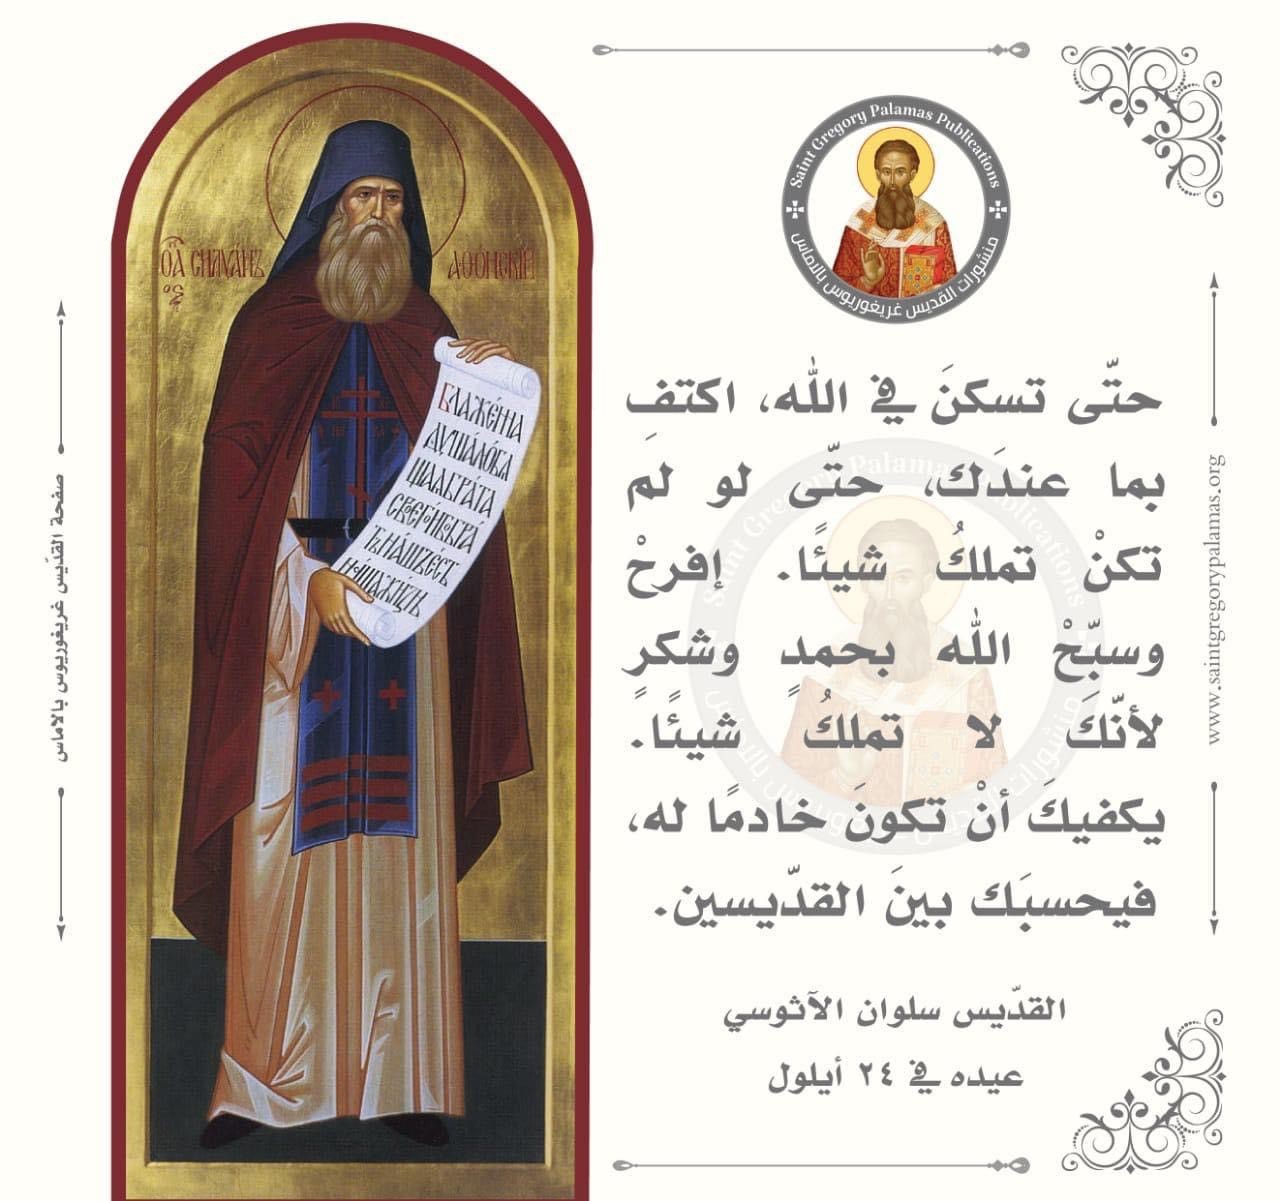 Saint Gregory Palamas Publications
منشورات القديس غريغوريوس بالاماس
حتّى تسكنَ في الله، اكتفِ
بما عندَك، حتّى لو لم
تكنْ تملكُ شيئًا. إفرحْ
وسبّحْ الله بحمدٍ وشكرٍ
لأنّكَ لا تملكُ شيئًا.
يكفيكَ أنْ تكونَ خادمًا له،
فيحسبَك بينَ القدّيسين.
القدّيس سلوان الآثوسي
عيده في ٢٤ أيلول
www.saintgregorypalamas.org
صفحة القدّيس غريغوريوس بالاماس
СИЛУАНЪ
БЛАЖЕННА
ДУША ЛЮБѦ